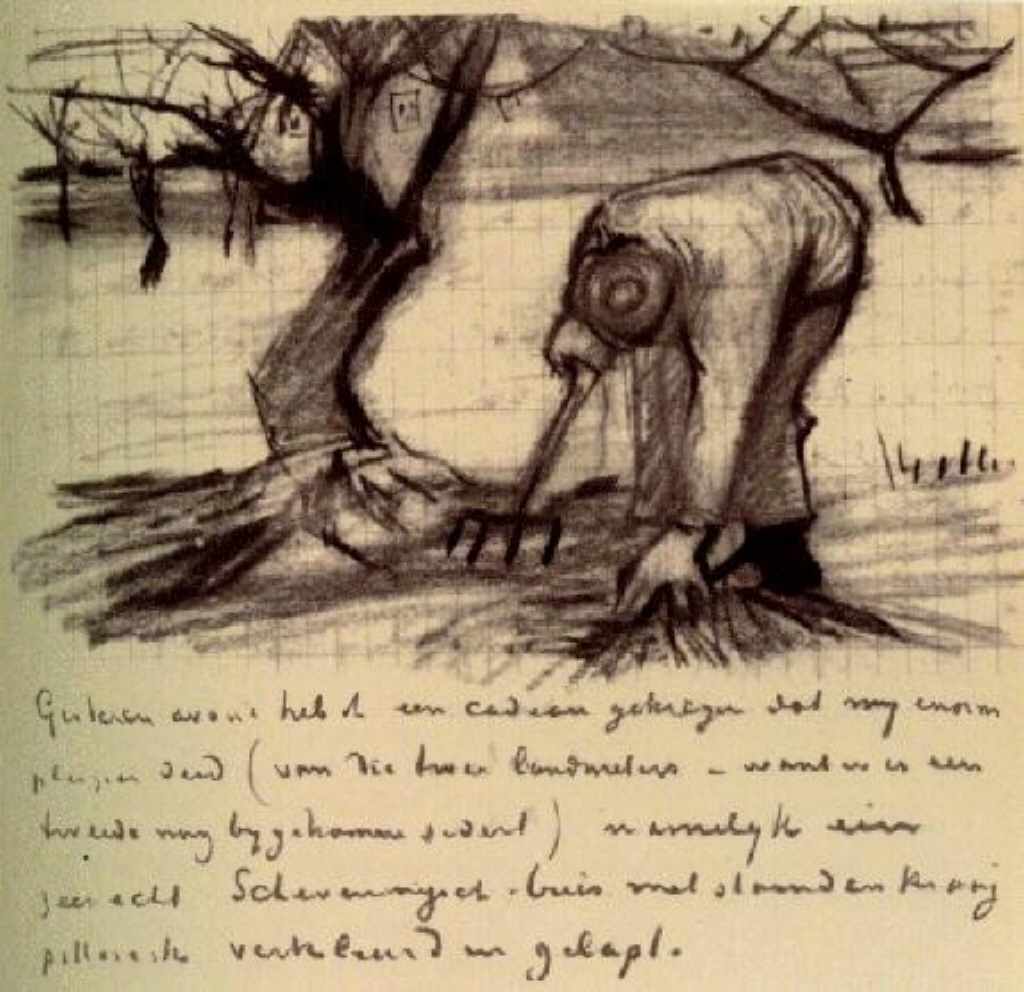 Gisteren avond heb ik een cadeau gekregen dat my enorm
plezier deed (van die twee landmeters – want er is een
tweede nog bygekomen sedert) namelyk een
zeer echt Scheveningsch buis met staanden kraag
pittoresk verkleurd en gelapt.